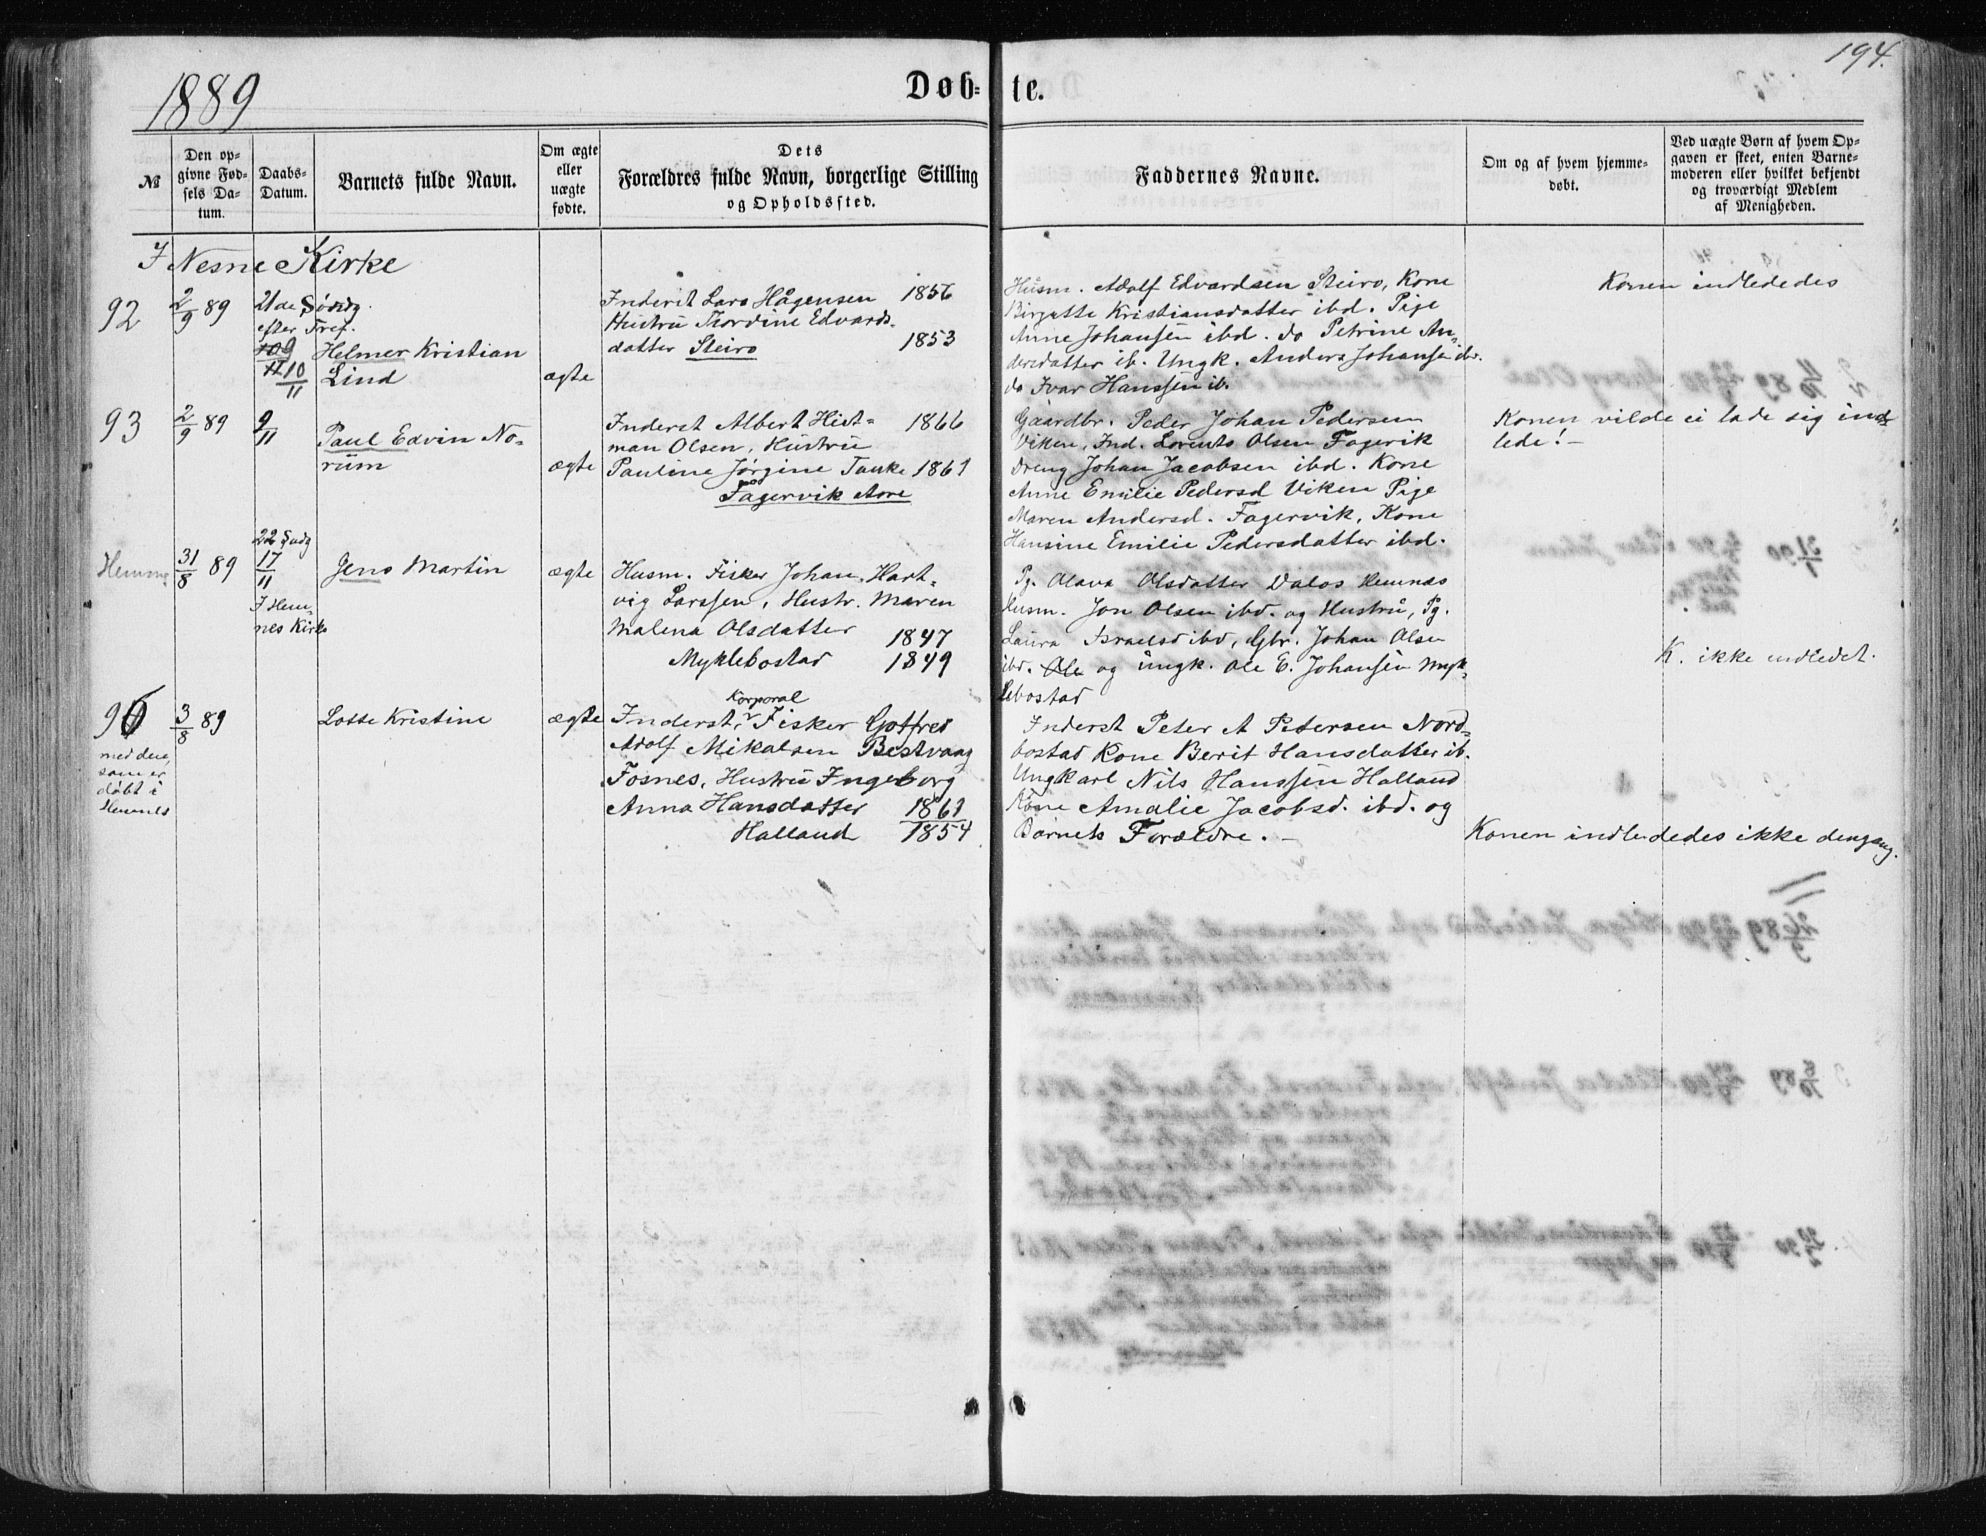 1889
Døb-
te.
194.
№
Den op-
givne Fød-
sels Da-
tum.
Daabs-
Datum.
Barnets fulde Navn.
Om ægte
eller
uægte
fødte.
Dets
Forældres fulde Navn, borgerlige Stilling
og Opholdssted.
Faddernes Navne.
Om og af hvem hjemme-
døbt.
Ved uægte Børn af hvem Op-
gaven er skeet, enten Barne-
moderen eller hvilket bekjendt
og troværdigt Medlem
af Menigheden.
I Nesne Kirke
92
2/9 89
21de Søndg.
efter Tref.
10/11
Helmer Kristian
Lind
ægte
Inderst Lars Hågensen 1856
Hustru Thordine Edvards-
datter Steiro 1853
Husm. Adolf Edvardsen Steiro, Kone
Birgitte Kristiansdatter ibd. Pige
Anne Johansen ibd. do Petrine An-
dersdatter ib. Ungk. Anders Johansen ibd.
do Ivar Hanssen ib.
Konen indlededes
93
2/9 89
9/11
Paul Edvin No-
rum
ægte
Inderst Albert Hist- 1866
man Olsen, Hustru
Pauline Jørgine Tanke 1861
Fagervik Aore
Gaardbr. Peder Johan Pedersen
Viken, Ind. Lorents Olsen Fagervik
Dreng Johan Jacobsen ibd. Kone
Anne Emilie Pedersd Viken Pige
Maren Andersd. Fagervik, Kone
Hansine Emilie Pedersdatter ibd.
Konen vilde ei lade sig ind-
lede!-
Hemnæ
31/8 89
22 Sndg
17/11
I Hem-
nes Kirke
Jens Martin
ægte
Husm. Fisker Johan Hart-
vig Larssen, Hustr. Maren
Malena Olsdatter 1847
Myklebostad 1849
Pg. Olava Olsdatter Dalos Hemnæs
Husm. Jon Olsen ibd. og Hustru, Pg.
Laura Israelsd ibd, Gbr. Johan Olsen
ibd. Ole og ungk. Ole E. Johansen Myk-
lebostad
K. ikke indledet.
96
med den,
som er
døbt i
Hemnes
3/8 89
Lotte Kristine
ægte
Korporal
Inderst, Fisker Gotfred
Adolf Mikalsen Bestvaag
Fosnes, Hustru Ingeborg
Anna Hansdatter 1861
Halland 1854
Inderst Peter A Petersen Nord-
bostad Kone Berit Hansdatter ib.
Ungkarl Nils Hanssen Halland
Kone Amalie Jacobsd. ibd. og
Barnets Forældre. -
Konen indlededes ikke dengang.